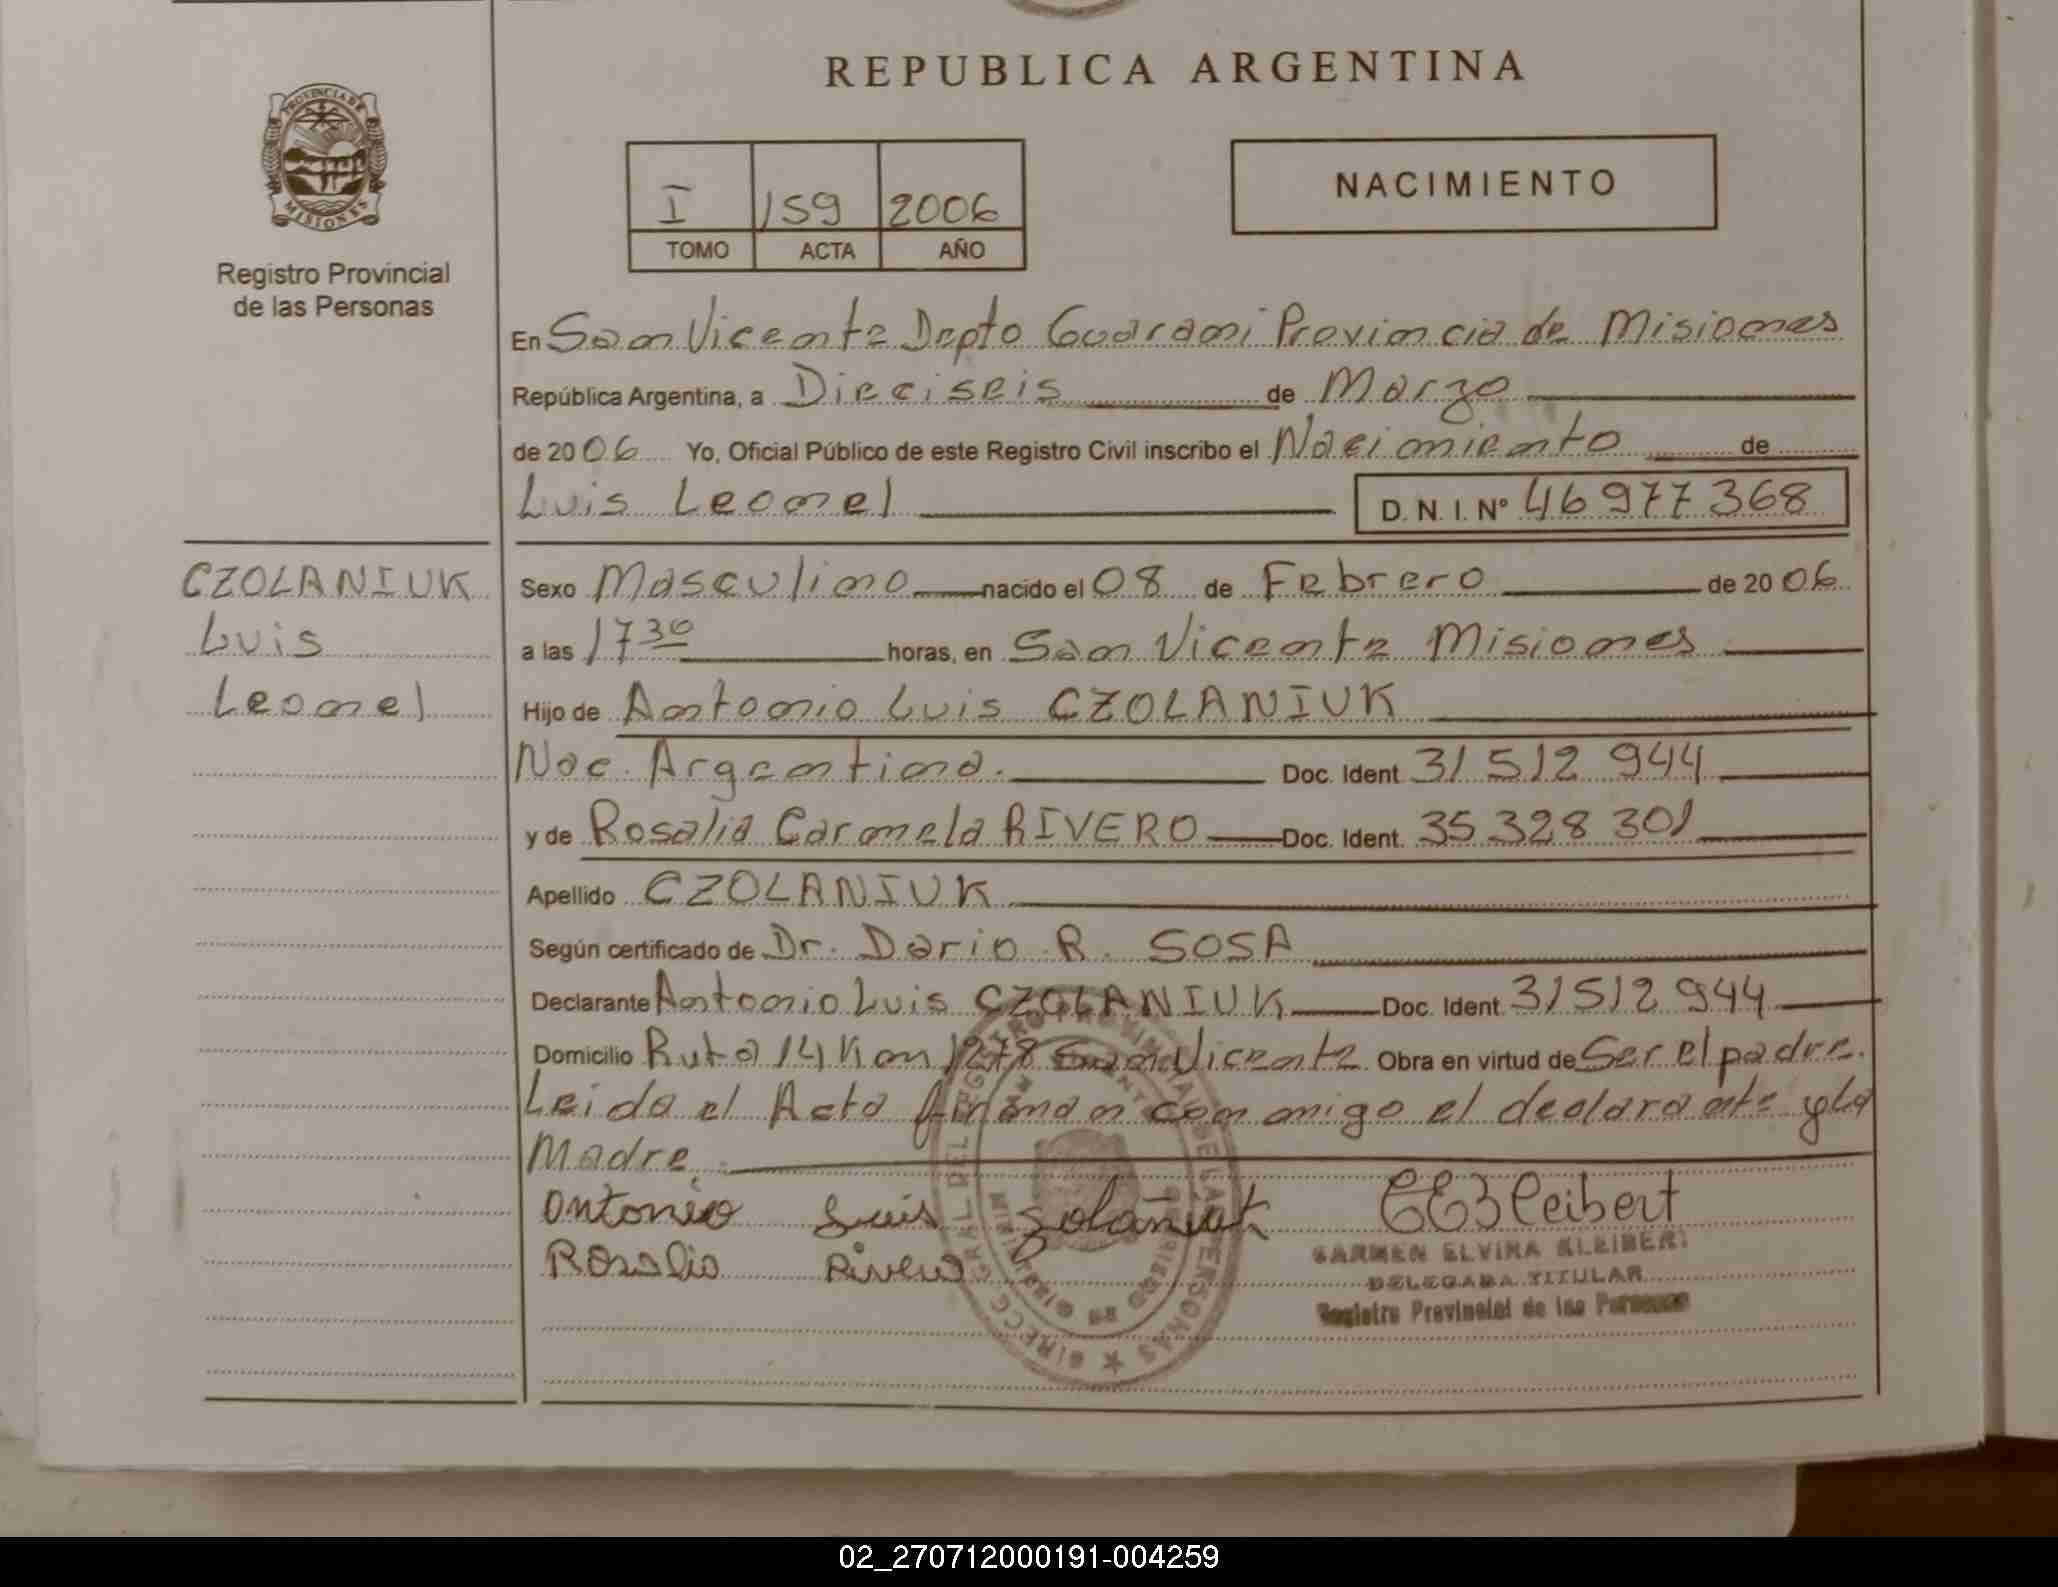 REPUBLICA ARGENTINA
PROVINCIA DE
MISIONES
Registro Provincial
de las Personas
I 159 2006
TOMO ACTA AÑO
NACIMIENTO
En San Vicente Depto Guarani Provincia de Misiones
República Argentina, a Dieciseis de Marzo
de 2006 Yo, Oficial Público de este Registro Civil inscribo el Nacimiento de
Luis Leonel D. N. I. Nº 46 977 368
CZOLANIUK
Luis
Leonel
Sexo Masculino nacido el 08 de Febrero de 2006
a las 17 30 horas, en San Vicente Misiones
Hijo de Antonio Luis CZOLANIUK
Nac. Argentina. Doc. Ident. 31 512 944
y de Rosalia Carmela RIVERO Doc. Ident. 35 328 301
Apellido CZOLANIUK
Según certificado de Dr. Dario R. SOSA
Declarante Antonio Luis CZOLANIUK Doc. Ident. 31512 944
Domicilio Ruta 14 Km 1278 San Vicente Obra en virtud de Ser el padre.
Leida el Acta firman conmigo el declarante y la
Madre.
Antonio Luis Zolaniuk
Rosalia Rivero
CARMEN ELVIRA KLEIBERT
DELEGADA TITULAR
Registro Provincial de las Personas
02_270712000191-004259